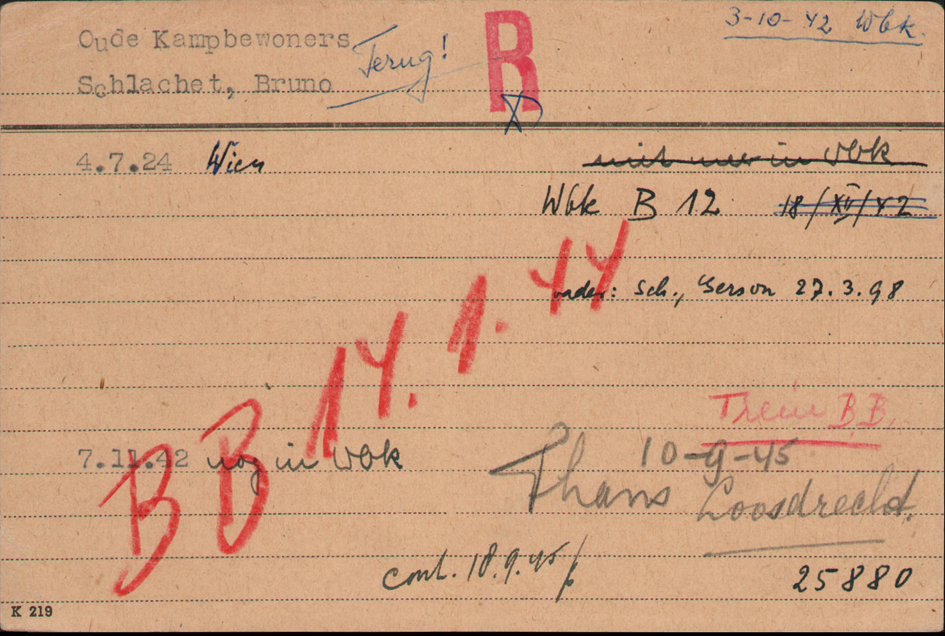 Oude Kampbewoners
Terug!
R
3-10-42 Wbk.
Schlachet, Bruno
4.7.24 Wien
niet meer in Wbk
Wbk B 12 18/XII/42
vader: Sch., Gerson 27.3.98
BB 14.1.44
Trein B.B.
7.11.42 nog in Wbk
10-9-45
Thans Loosdrecht.
cont. 18.9.45
25880
K 219